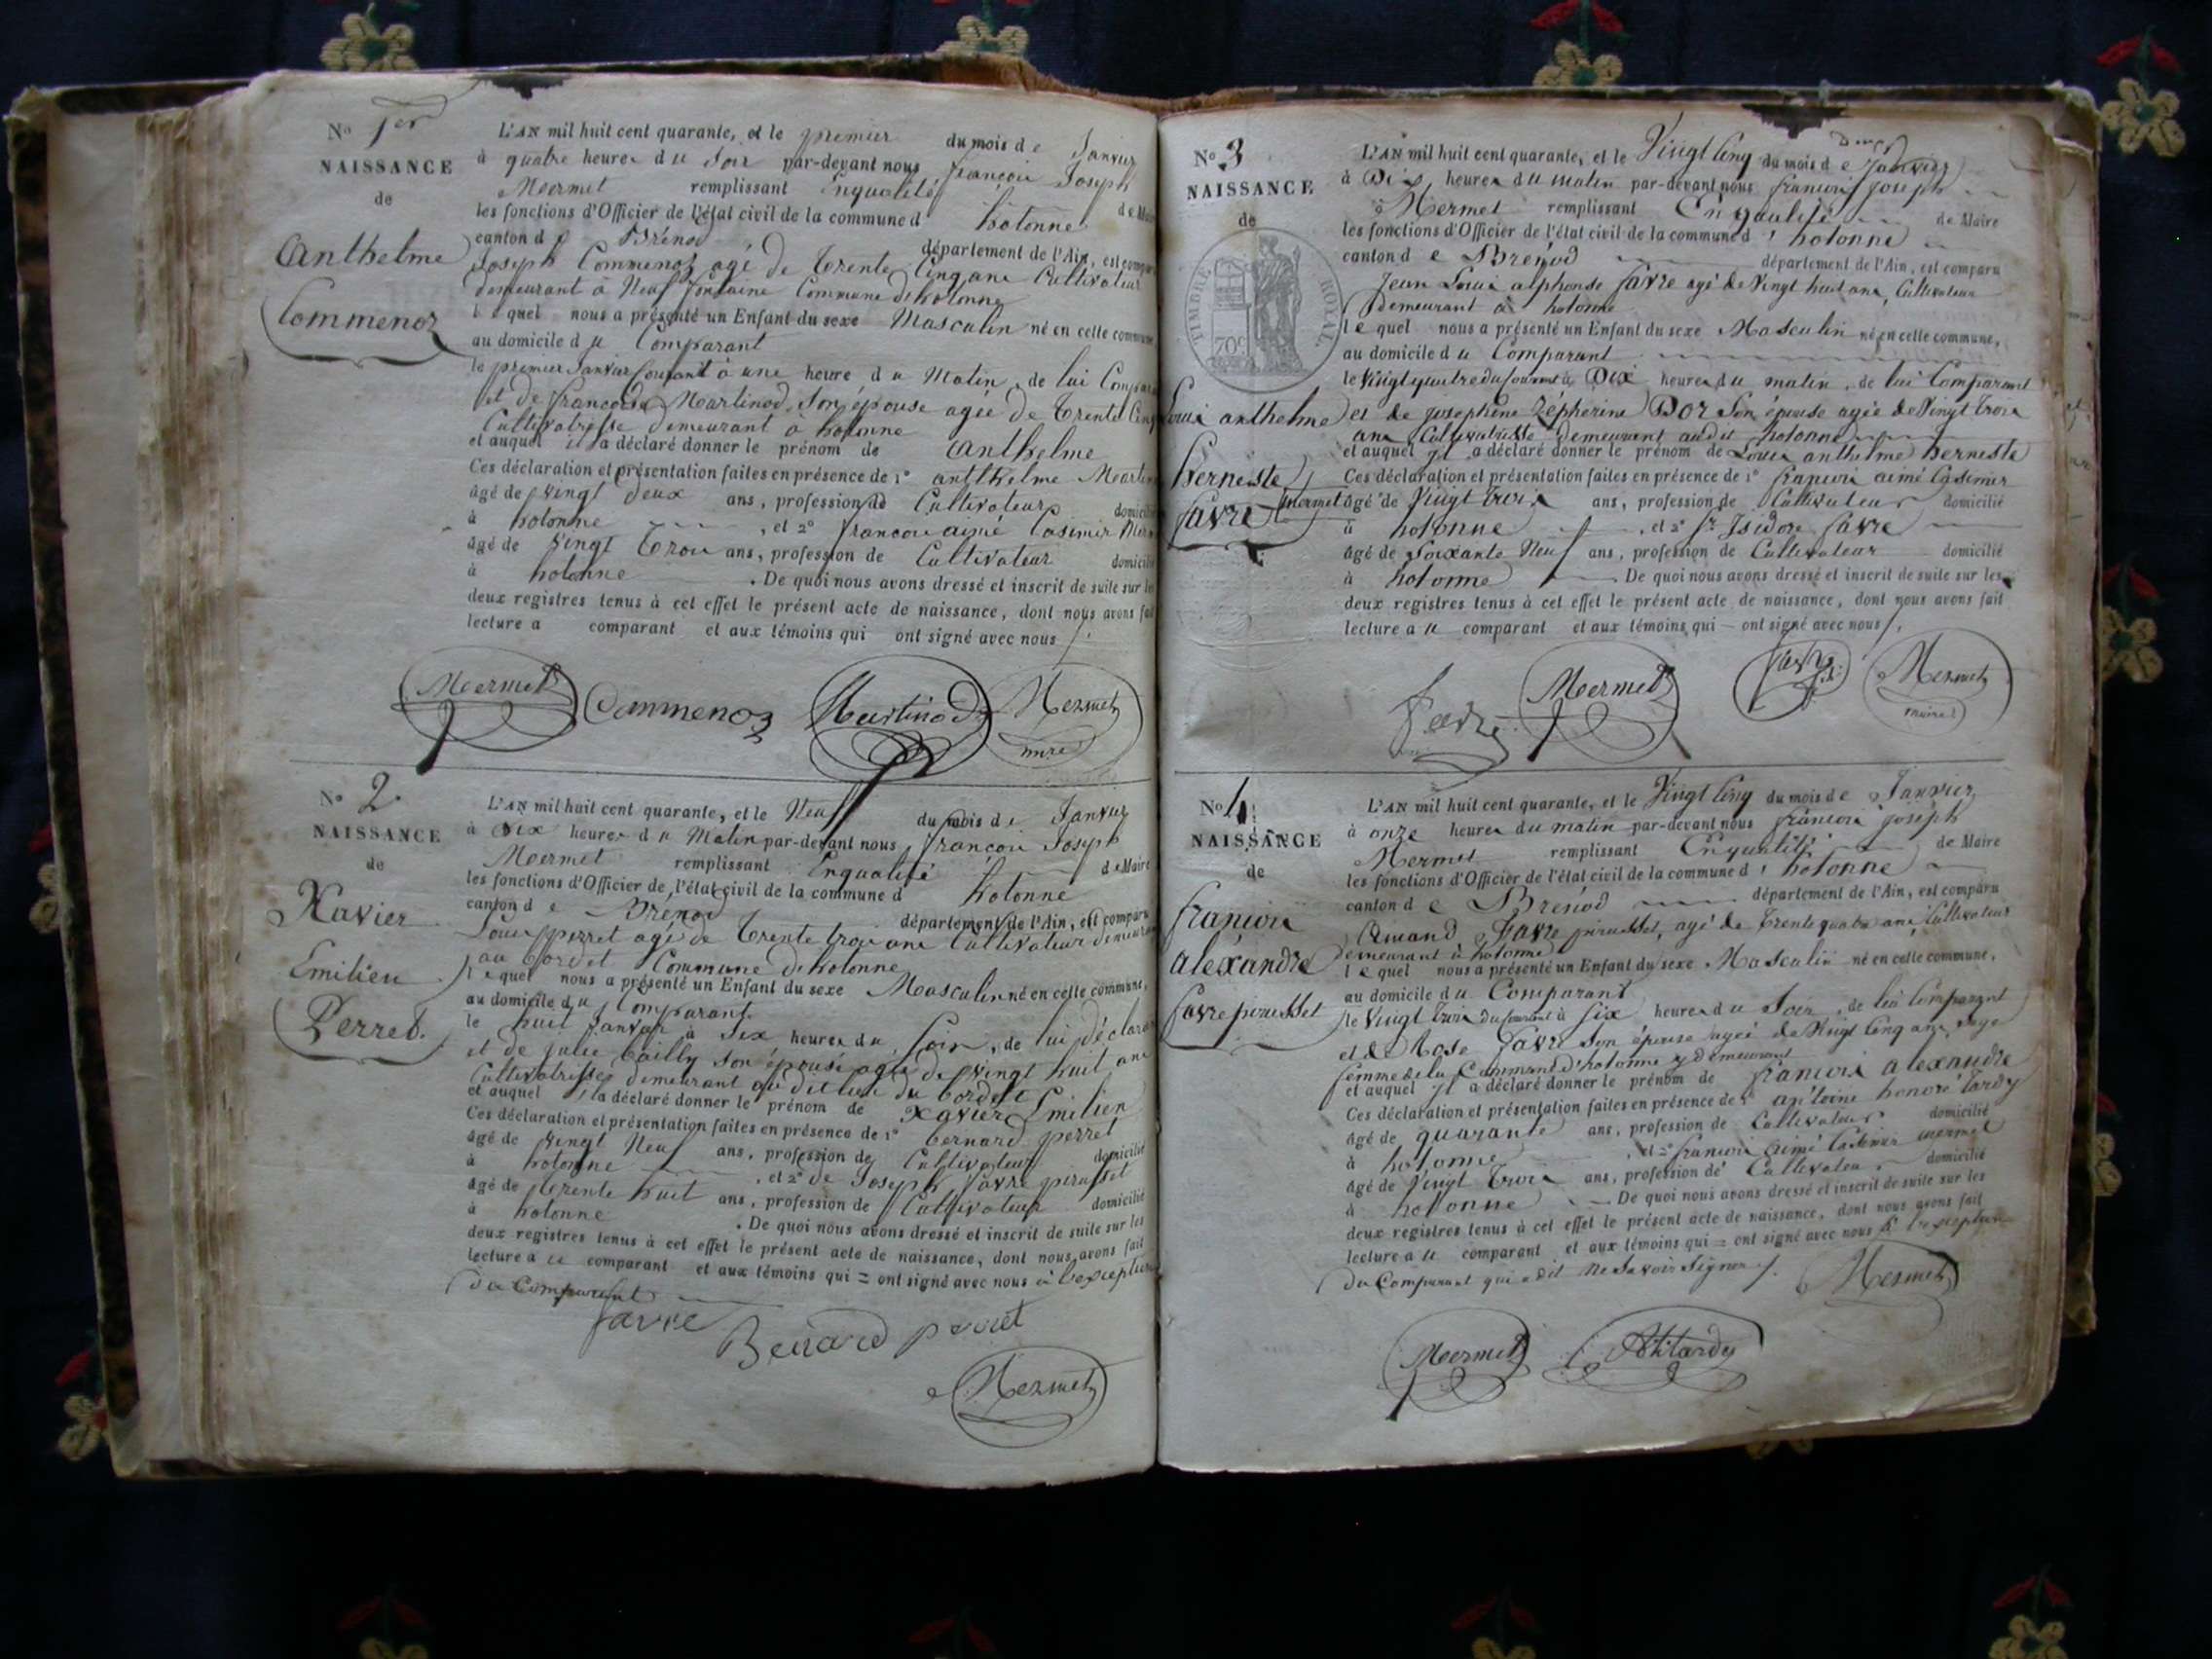 No 1er
NAISSANCE
de
Anthelme
Commenoz
L'AN mil huit cent quarante, et le premier du mois de Janvier
à quatre heures du Soir par-devant nous françois Joseph
Mermet remplissant Enqualité de Maire
les fonctions d'Officier de l'état civil de la commune d' hotonne
canton de Brénod département de l'Ain, est comparu
Joseph Commenoz agé de Trente Cinq ans Cultivateur
demeurant à Neuf fontaine Commune d'hotonne
lequel nous a présenté un Enfant du sexe Masculin né en cette commune
au domicile du Comparant
le premier Janvier Courant à une heure du Matin, de lui Comparant
et de françoise Martinod, son épouse agée de Trente Cinq
Cultivatrisse demeurant à hotonne
et auquel il a déclaré donner le prénom de Anthelme
Ces déclaration et présentation faites en présence de 1° anthelme Martin
âgé de vingt deux ans, profession de Cultivateur domicilié
à hotonne, et 2° francois aimé Casimir Mermet
âgé de vingt Trois ans, profession de Cultivateur domicilié
à hotonne. De quoi nous avons dressé et inscrit de suite sur les
deux registres tenus à cet effet le présent acte de naissance, dont nous avons fait
lecture a comparant et aux témoins qui ont signé avec nous
Mermet Commenoz Martinod Mermet
maire
No 2
NAISSANCE
de
Xavier
Emilien
Perret.
L'AN mil huit cent quarante, et le Neuf du mois de Janvier
à Dix heures du Matin par-devant nous françois Joseph
Mermet remplissant Enqualité de Maire
les fonctions d'Officier de l'état civil de la commune d hotonne
canton de Brénod département de l'Ain, est comparu
Louis perret agé de Trente trois ans Cultivateur demeurant
au bordet Commune d'hotonne
lequel nous a présenté un Enfant du sexe Masculin né en cette commune,
au domicile du Comparant
le huit Janvier à Six heures du Soir, de lui déclarant
et de Julie bailly son épouse agée de vingt huit ans
Cultivatrisse demeurant au dit lieu du bordet
et auquel il a déclaré donner le prénom de Xavier Emilien
Ces déclaration et présentation faites en présence de 1° bernard perret
âgé de vingt Neuf ans, profession de Cultivateur domicilié
à hotonne, et 2° de Joseph favre pirusset
âgé de Trente huit ans, profession de Cultivateur domicilié
à hotonne. De quoi nous avons dressé et inscrit de suite sur les
deux registres tenus à cet effet le présent acte de naissance, dont nous avons fait
lecture a u comparant et aux témoins qui = ont signé avec nous à l'exception
du Comparant
favre Benard perret
Mermet
No 3
NAISSANCE
de
TIMBRE ROYAL
70c
Louis anthelme
herneste
favre
L'AN mil huit cent quarante, et le Vingt Cinq du mois de Janvier
à Dix heures du matin par-devant nous françois joseph
Mermet remplissant Enqualité de Maire
les fonctions d'Officier de l'état civil de la commune d' hotonne
canton de Brénod département de l'Ain, est comparu
Jean Louis alphonse favre agé de Vingt huit ans, Cultivateur
demeurant à hotonne
lequel nous a présenté un Enfant du sexe Masculin né en cette commune,
au domicile du Comparant
le Vingt quatre du Courant à Dix heures du matin, de lui Comparant
et de josephine Zépherine Doz Son épouse agée de Vingt Trois
ans Cultivatrisse demeurant audit hotonne
et auquel il a déclaré donner le prénom de Louis anthelme herneste
Ces déclaration et présentation faites en présence de 1° françois aimé Casimir
mermet âgé de Vingt Trois ans, profession de Cultivateur domicilié
à hotonne, et 2° fr Isidore favre
âgé de Soixante Neuf ans, profession de Cultivateur domicilié
à hotonne De quoi nous avons dressé et inscrit de suite sur les
deux registres tenus à cet effet le présent acte de naissance, dont nous avons fait
lecture a u comparant et aux témoins qui — ont signé avec nous /.
favre Mermet Mermet
maire
No 4
NAISSANCE
de
françois
alexandre
favre pirusset
L'AN mil huit cent quarante, et le Vingt Cinq du mois de Janvier
à onze heures du matin par-devant nous françois joseph
Mermet remplissant Enqualité de Maire
les fonctions d'Officier de l'état civil de la commune d' hotonne
canton de Brénod département de l'Ain, est comparu
Amand Favre pirusset, agé de Trente quatre ans, Cultivateur
demeurant à hotonne
lequel nous a présenté un Enfant du sexe Masculin né en cette commune,
au domicile du Comparant
le Vingt Trois du Courant à Six heures du Soir, de lui Comparant
et de Rose favre Son épouse agée de Vingt Cinq ans, sage
femme de la Commune d'hotonne y demeurant
et auquel il a déclaré donner le prénom de françois alexandre
Ces déclaration et présentation faites en présence de 1° antoine honoré tardy
âgé de quarante ans, profession de Cultivateur domicilié
à hotonne, et 2° françois aimé Casimir mermet
âgé de Vingt Trois ans, profession de Cultivateur domicilié
à hotonne De quoi nous avons dressé et inscrit de suite sur les
deux registres tenus à cet effet le présent acte de naissance, dont nous avons fait
lecture a u comparant et aux témoins qui = ont signé avec nous à l'exception
du Comparant qui a dit Ne Savoir Signer /. Mermet
Mermet AHtardy